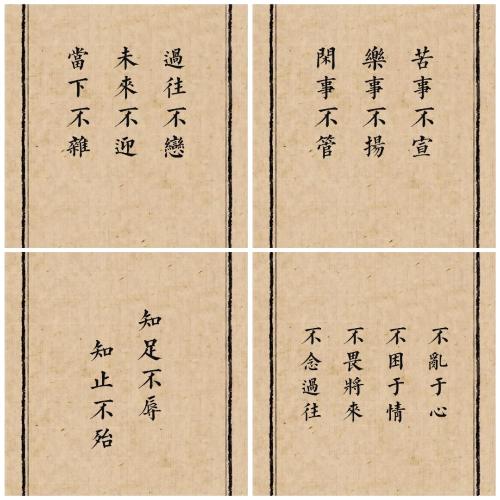 過往不戀
未來不迎
當下不雜
苦事不宣
樂事不揚
閑事不管
知足不辱
知止不殆
不亂于心
不困于情
不畏將來
不念過往